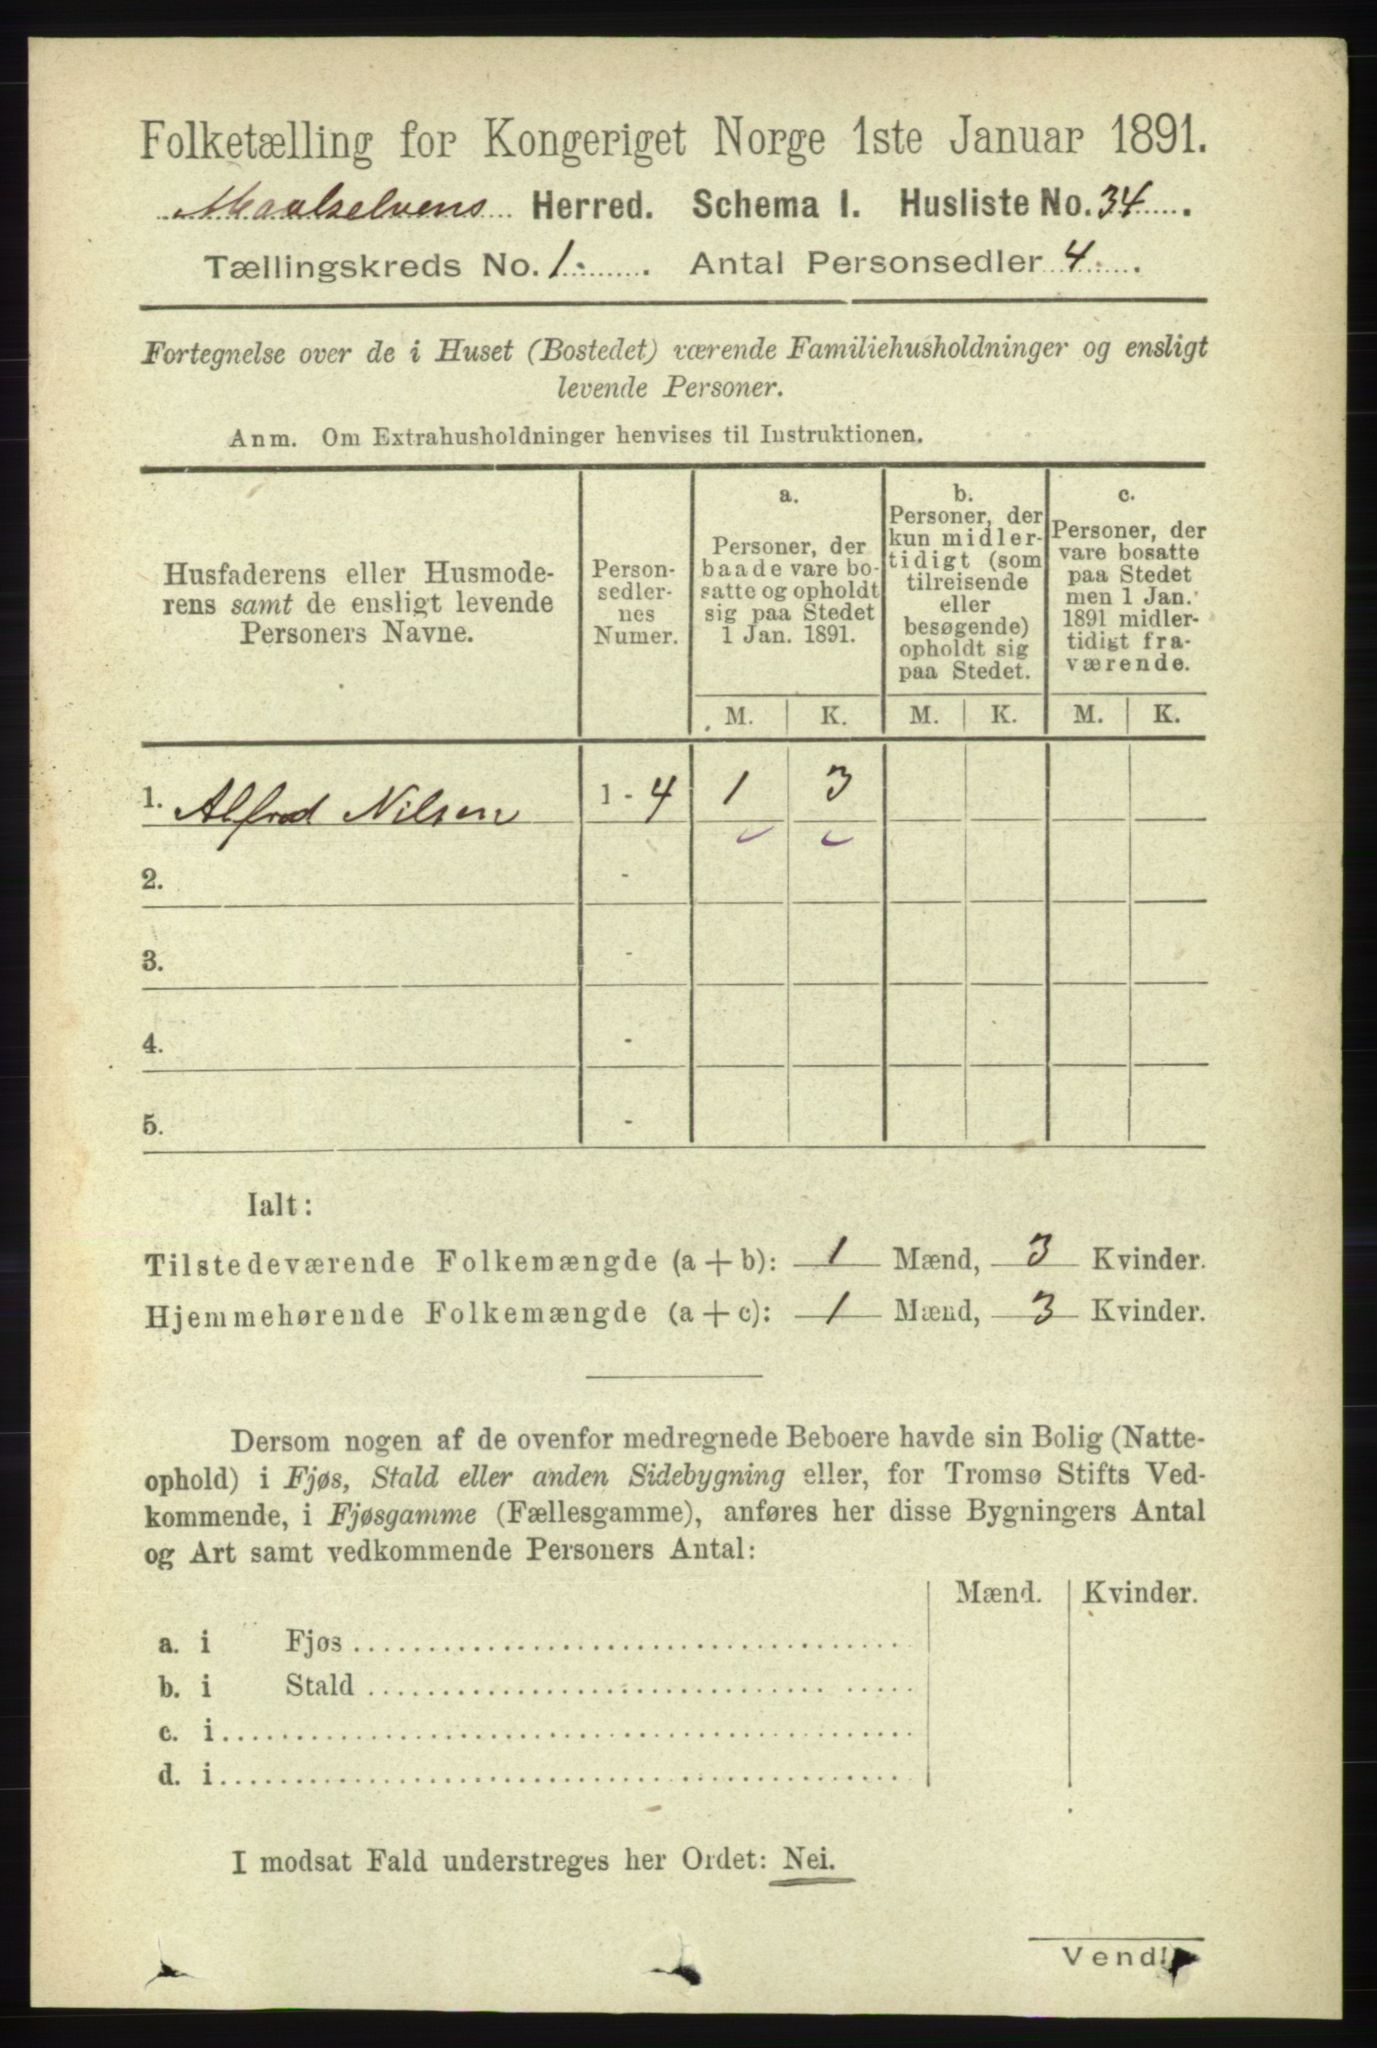 Folketælling for Kongeriget Norge 1ste Januar 1891.
Maalselvens Herred. Schema I. Husliste No. 34.
Tællingskreds No. 1. Antal Personsedler 4.
Fortegnelse over de i Huset (Bostedet) værende Familiehusholdninger og ensligt
levende Personer.
Anm. Om Extrahusholdninger henvises til Instruktionen.
Husfaderens eller Husmode-
rens samt de ensligt levende
Personers Navne.
Person-
sedler-
nes
Numer.
a.
Personer, der
baade vare bo-
satte og opholdt
sig paa Stedet
1 Jan. 1891.
b.
Personer, der
kun midler-
tidigt (som
tilreisende
eller
besøgende)
opholdt sig
paa Stedet.
c.
Personer, der
vare bosatte
paa Stedet
men 1 Jan.
1891 midler-
tidigt fra-
værende.
M. K. M. K. M. K.
1. Alfred Nilsen 1 - 4 1 3
2. -
3. -
4. -
5. -
Ialt:
Tilstedeværende Folkemængde (a + b): 1 Mænd, 3 Kvinder.
Hjemmehørende Folkemængde (a + c): 1 Mænd, 3 Kvinder.
Dersom nogen af de ovenfor medregnede Beboere havde sin Bolig (Natte-
ophold) i Fjøs, Stald eller anden Sidebygning eller, for Tromsø Stifts Ved-
kommende, i Fjøsgamme (Fællesgamme), anføres her disse Bygningers Antal
og Art samt vedkommende Personers Antal:
Mænd. Kvinder.
a. i Fjøs
b. i Stald
c. i
d. i
I modsat Fald understreges her Ordet: Nei.